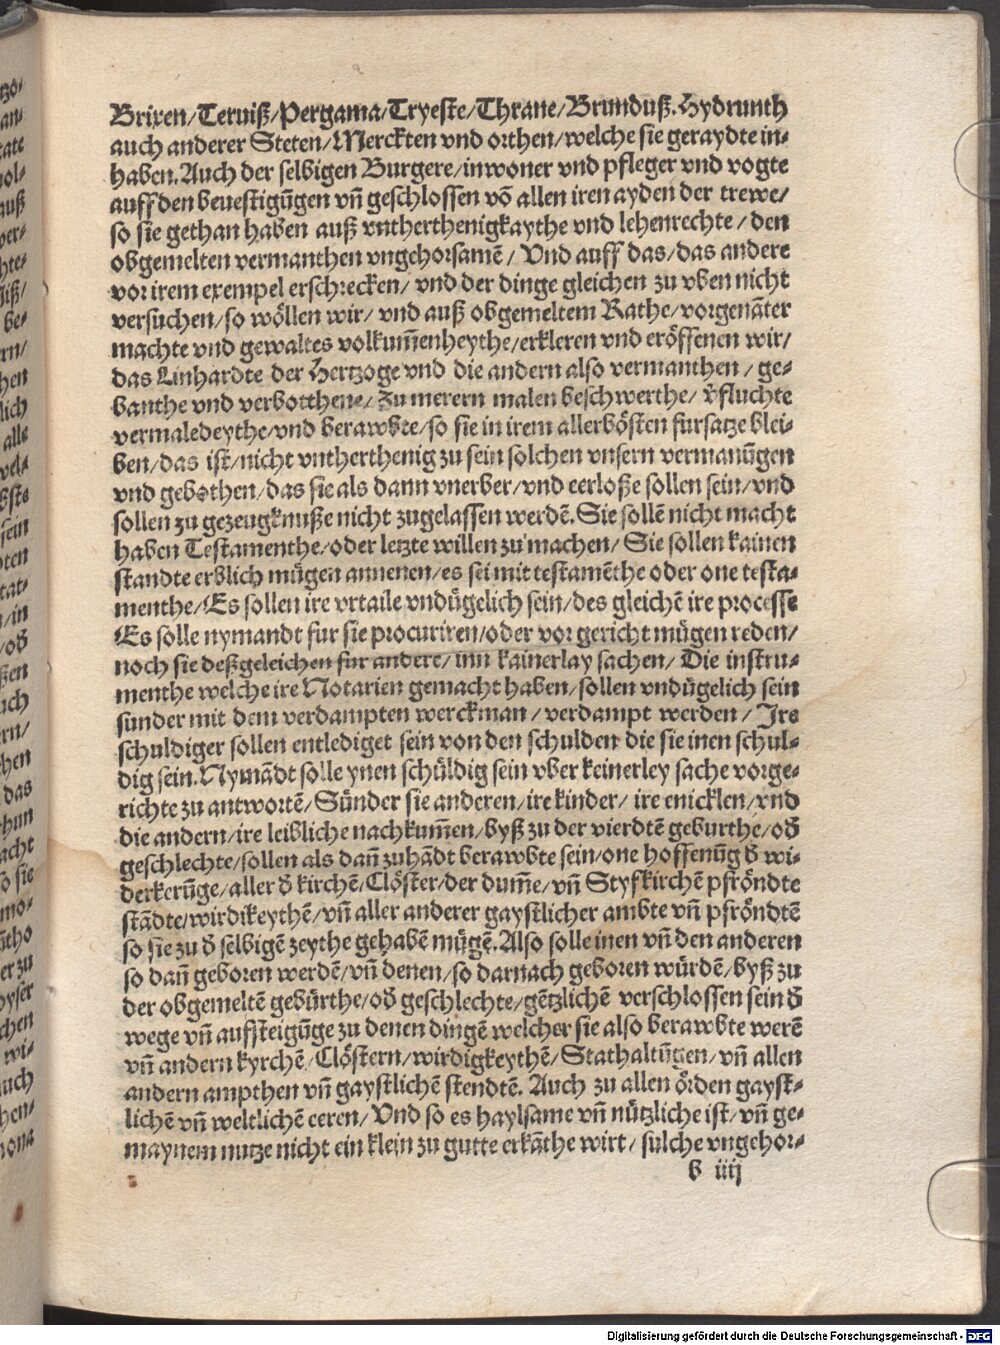 Brixen/Terviß/Pergama/Tryeste/Thrane/Brunduß.Hydrunth
auch anderer Steten/Merckten vnd orthen/welche sie geraydte in-
haben. Auch der selbigen Burgere/inwoner vnd pfleger vnd vogte
auff den bevestigūgen vn̄ geschlossen vō allen iren ayden der trewe/
so sie gethan haben auß vntherthenigkaythe vnd lehenrechte/den
obgemelten vermanthen vngehorsamē/Vnd auff das/das andere
vor irem exempel erschrecken/vnd der dinge gleichen zu vben nicht
versuchen/so wöllen wir/vnd auß obgemeltem Rathe/vorgenāter
machte vnd gewaltes volkum̄enheythe/erkleren vnd eröffenen wir/
das Linhardte der Hertzoge vnd die andern also vermanthen/ge-
banthe vnd verbotthene/Zu merern malen beschwerthe/v̄fluchte
vermaledeythe/vnd berawbte/so sie in irem allerbösten fursatze blei-
ben/das ist/nicht vntherthenig zu sein solchen vnsern vermanūgen
vnd gebothen/das sie als dann vnerber/vnd eerloße sollen sein/vnd
sollen zu gezeugknuße nicht zugelassen werdē. Sie sollē nicht macht
haben Testamenthe/oder letzte willen zu machen/Sie sollen kainen
standte erblich mügen annenen/es sei mit testamēthe oder one testa-
menthe/Es sollen ire vrtaile vndügelich sein/des gleichē ire processe
Es solle nymandt fur sie procuriren/oder vor gericht mügen reden/
noch sie deßgeleichen fur andere/inn kainerlay sachen/Die instru-
menthe welche ire Notarien gemacht haben/sollen vndügelich sein
sunder mit dem verdampten werckman/verdampt werden/Ire
schuldiger sollen entlediget sein von den schulden die sie inen schul-
dig sein. Nymādt solle ynen schüldig sein vber keinerley sache vorge-
richte zu antwortē/Sünder sie anderen/ire kinder/ire enicklen/vnd
die andern/ire leibliche nachkum̄en/byß zu der vierdtē geburthe/od̄
geschlechte/sollen als dan̄ zuhādt berawbte sein/one hoffenūg d̄ wi-
derkerūge/aller d̄ kirchē/Clöster/der dum̄e/vn̄ Styfkirchē pfröndte
städte/wirdikeythē/vn̄ aller anderer gaystlicher ambte vn̄ pfröndtē
so sie zu d̄ selbigē zeythe gehabē mügē. Also solle inen vn̄ den anderen
so dan̄ geboren werdē/vn̄ denen/so darnach geboren würdē/byß zu
der obgemeltē gebürthe/od̄ geschlechte/gētzlichē verschlossen sein d̄
wege vn̄ aufsteigūge zu denen dingē welcher sie also berawbte werē
vn̄ andern kyrchē/Clöstern/wirdigkeythē/Stathaltūgen/vn̄ allen
andern ampthen vn̄ gaystlichē stendtē. Auch zu allen örden gayst-
lichē vn̄ weltlichē eeren/Vnd so es haylsame vn̄ nützliche ist/vn̄ ge-
maynem nutze nicht ein klein zu gutte erkāthe wirt/sulche vngehor-
b iiij
Digitalisierung gefördert durch die Deutsche Forschungsgemeinschaft - DFG